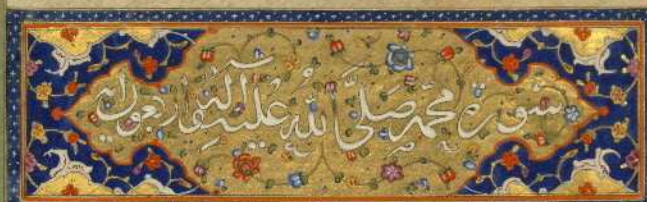 سورة محمد صلى الله عليه وآله وأربعون آية